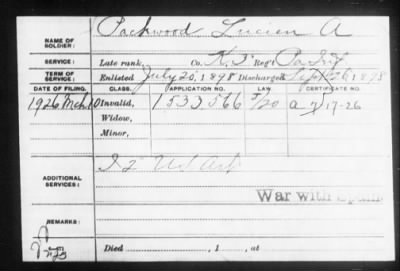 NAME OF SOLDIER: Packwood, Lucien A
SERVICE: Late rank, Co. K, 3" Reg't Pa Inf
TERM OF SERVICE: Enlisted July 20, 1898 Discharged 1898
DATE OF FILING. CLASS. APPLICATION NO. LAW CERTIFICATE NO.
1926 Mch 10 Invalid, 1533,566 a 17-26
Widow,
Minor,
ADDITIONAL SERVICES:
War with Spain
REMARKS:
Died , 1 , at